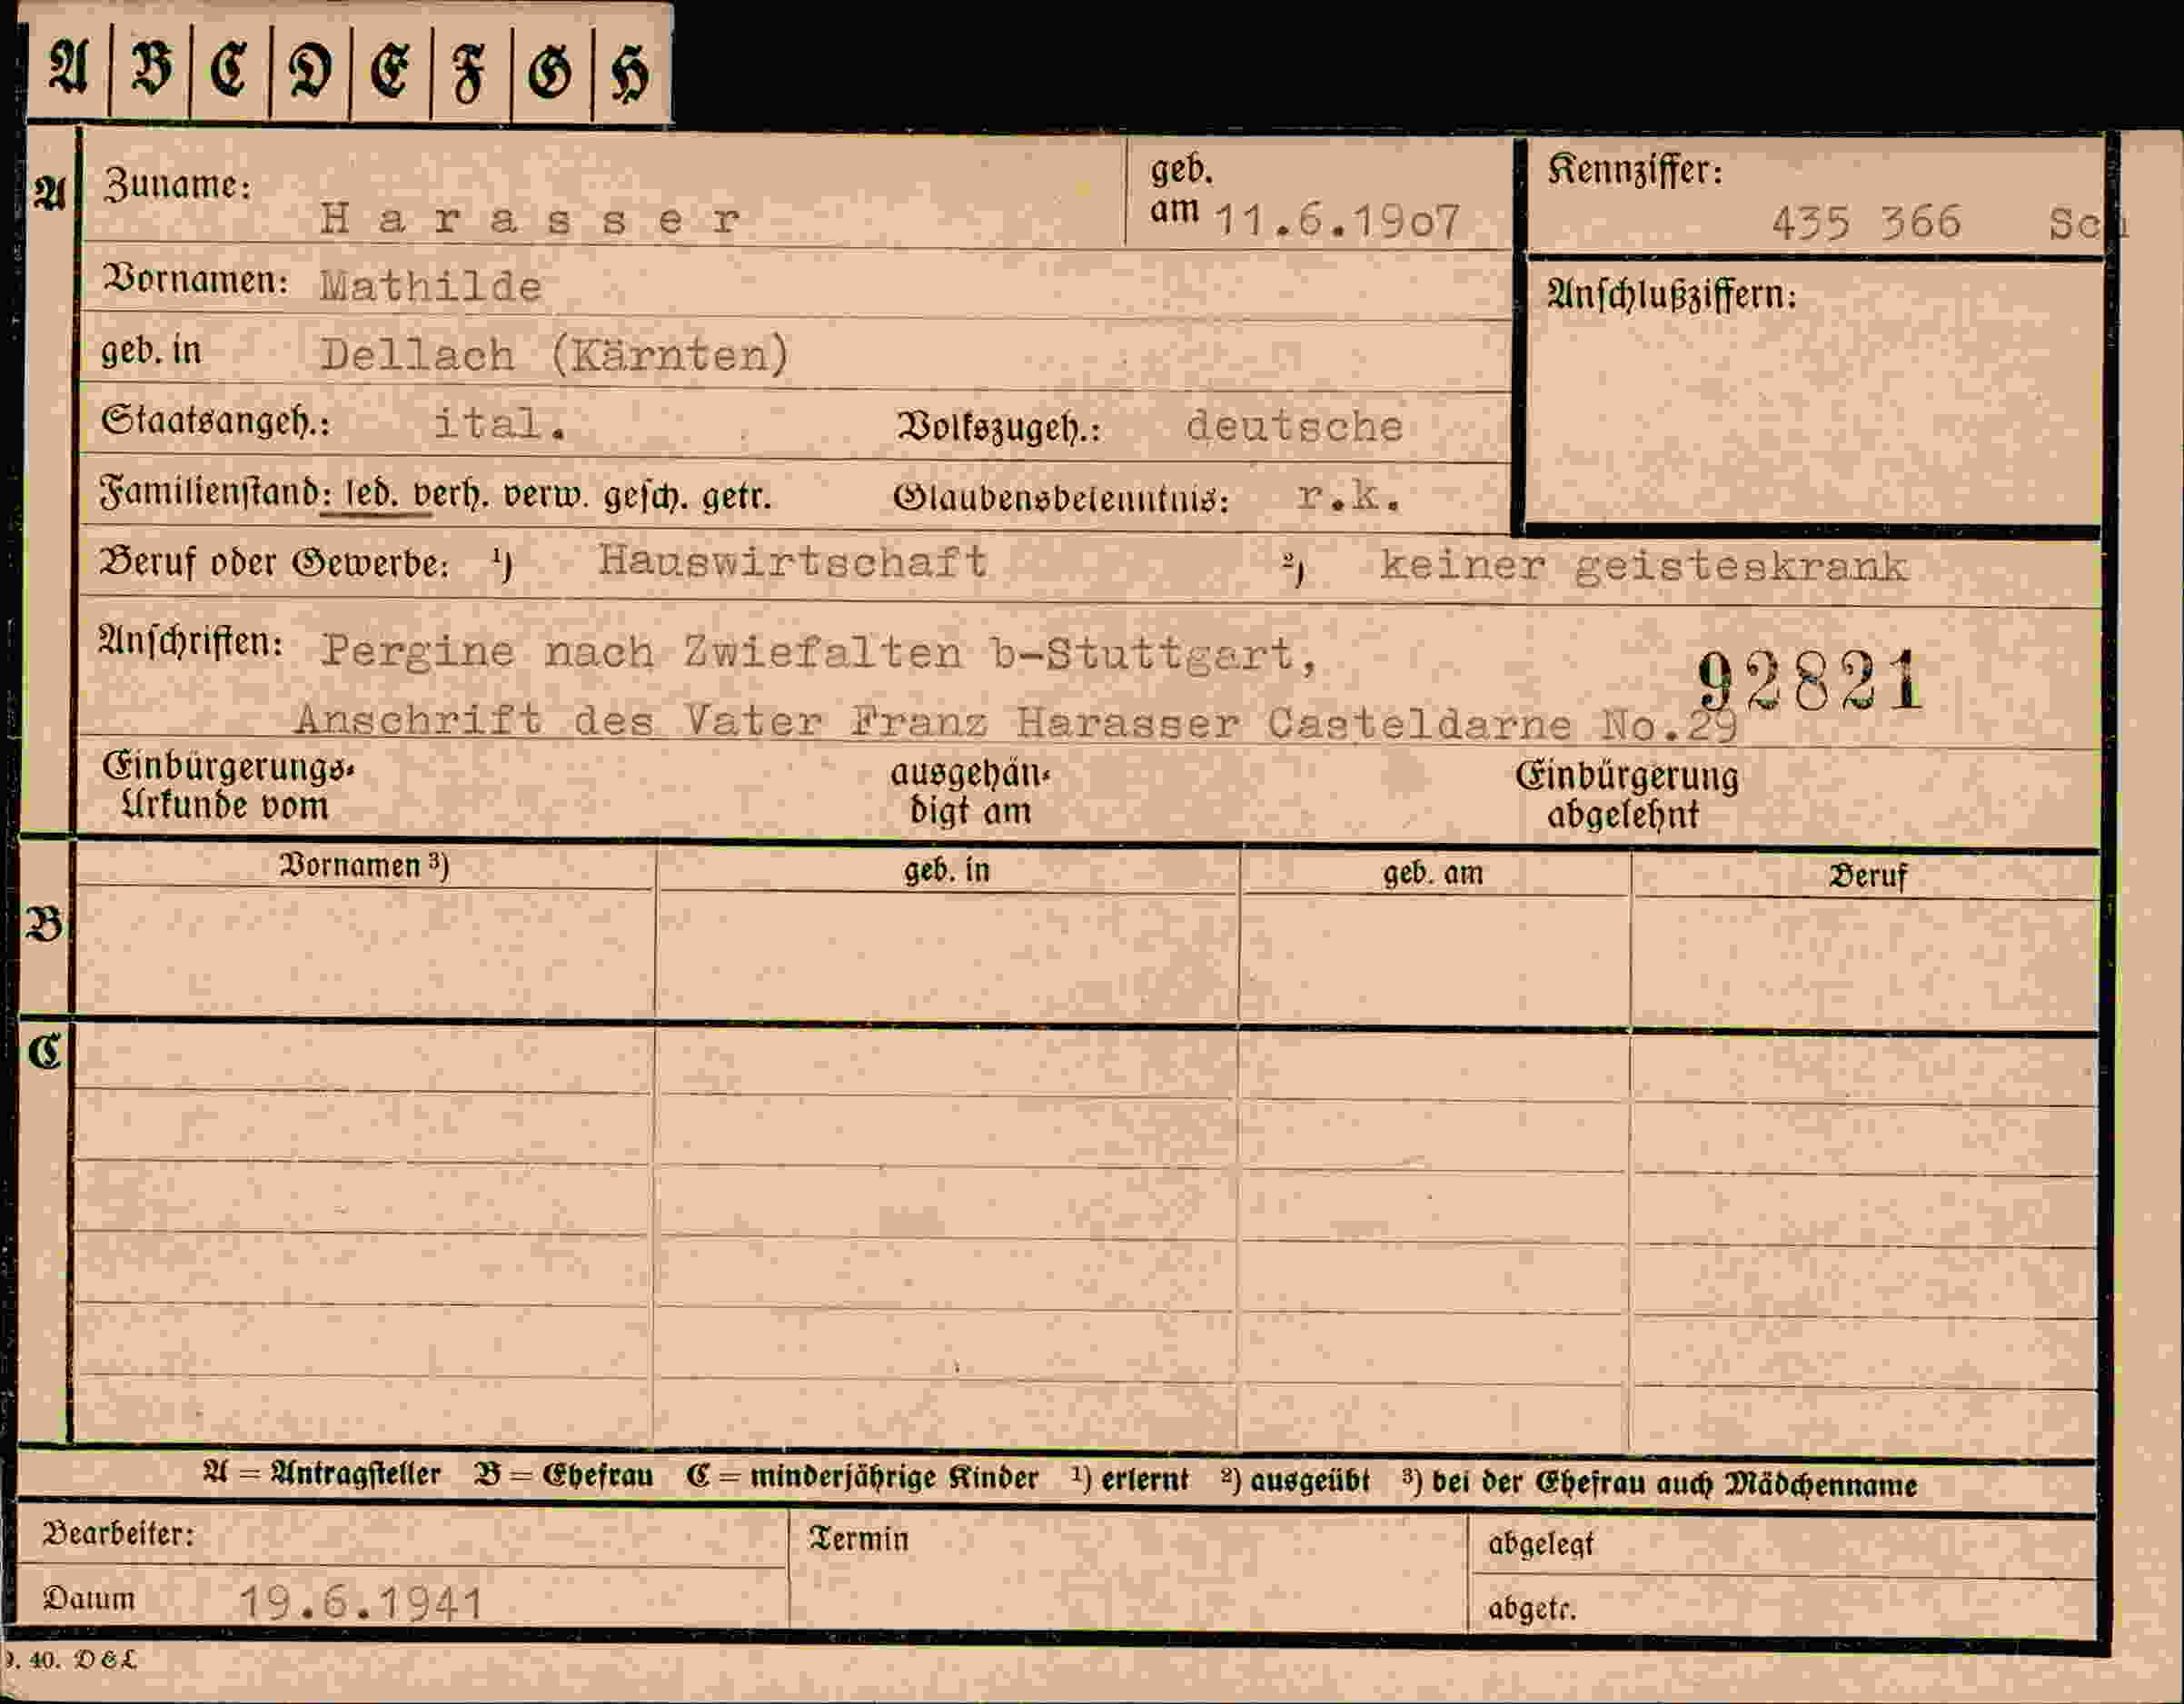 A B C D E F G H
A Zuname: Harasser geb. am 11.6.1907 Kennziffer: 435 366 Sch
Vornamen: Mathilde Anschlußziffern:
geb. in Dellach (Kärnten)
Staatsangeh.: ital. Volkszugeh.: deutsche
Familienstand: led. verh. verw. gesch. getr. Glaubensbekenntnis: r.k.
Beruf oder Gewerbe: ¹) Hauswirtschaft ²) keiner geisteskrank
Anschriften: Pergine nach Zwiefalten b-Stuttgart,
92821
Anschrift des Vater Franz Harasser Casteldarne No.29
Einbürgerungs- ausgehän- Einbürgerung
Urkunde vom digt am abgelehnt
B Vornamen ³) geb. in geb. am Beruf
C
A = Antragsteller B = Ehefrau C = minderjährige Kinder ¹) erlernt ²) ausgeübt ³) bei der Ehefrau auch Mädchenname
Bearbeiter: Termin abgelegt
Datum 19.6.1941 abgetr.
40. D&L